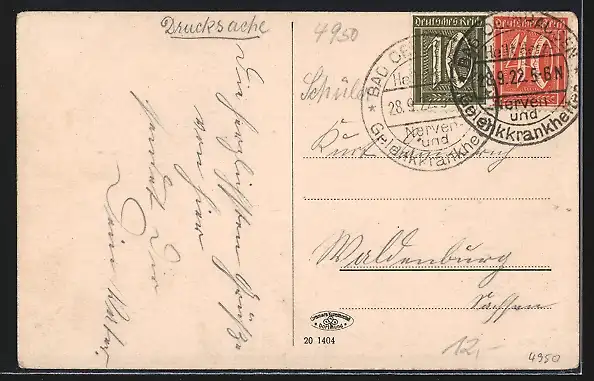 Drucksache
4950
Die herzlichsten Grüße
von hier
sendet Dir
Dein Vater.
Deutsches Reich
10
Deutsches Reich
40
BAD OE
28.9.22. 5-6 N
Nerven
und
Gelenkkrankheiten
Schüler
Kurt
Waldenburg
Sachsen
20 1404
12,-
4950